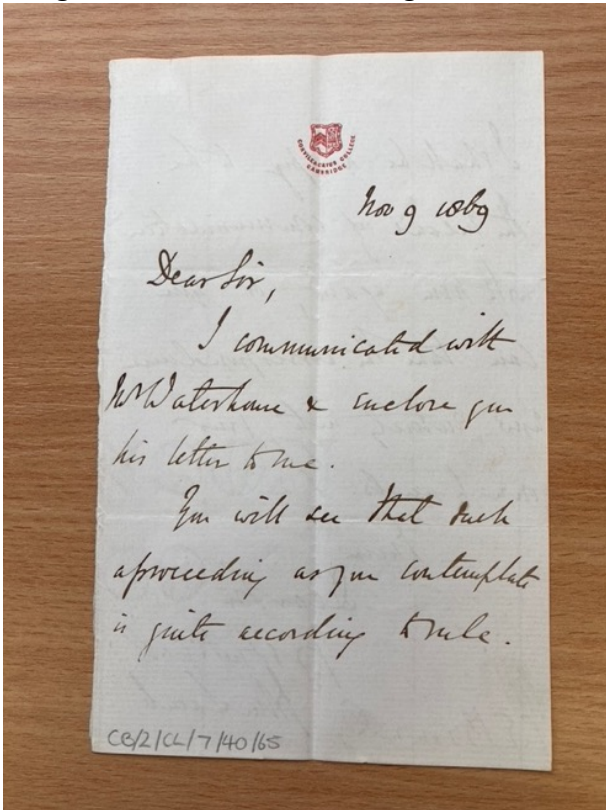 GONVILLE & CAIUS COLLEGE
CAMBRIDGE
Nov 9 1869
Dear Sir,
I communicated with
Mr Waterhouse & enclose you
his letter to me.
You will see that such
a proceeding as you contemplate
is quite according to rule.
CB/2/CL/7/40/65